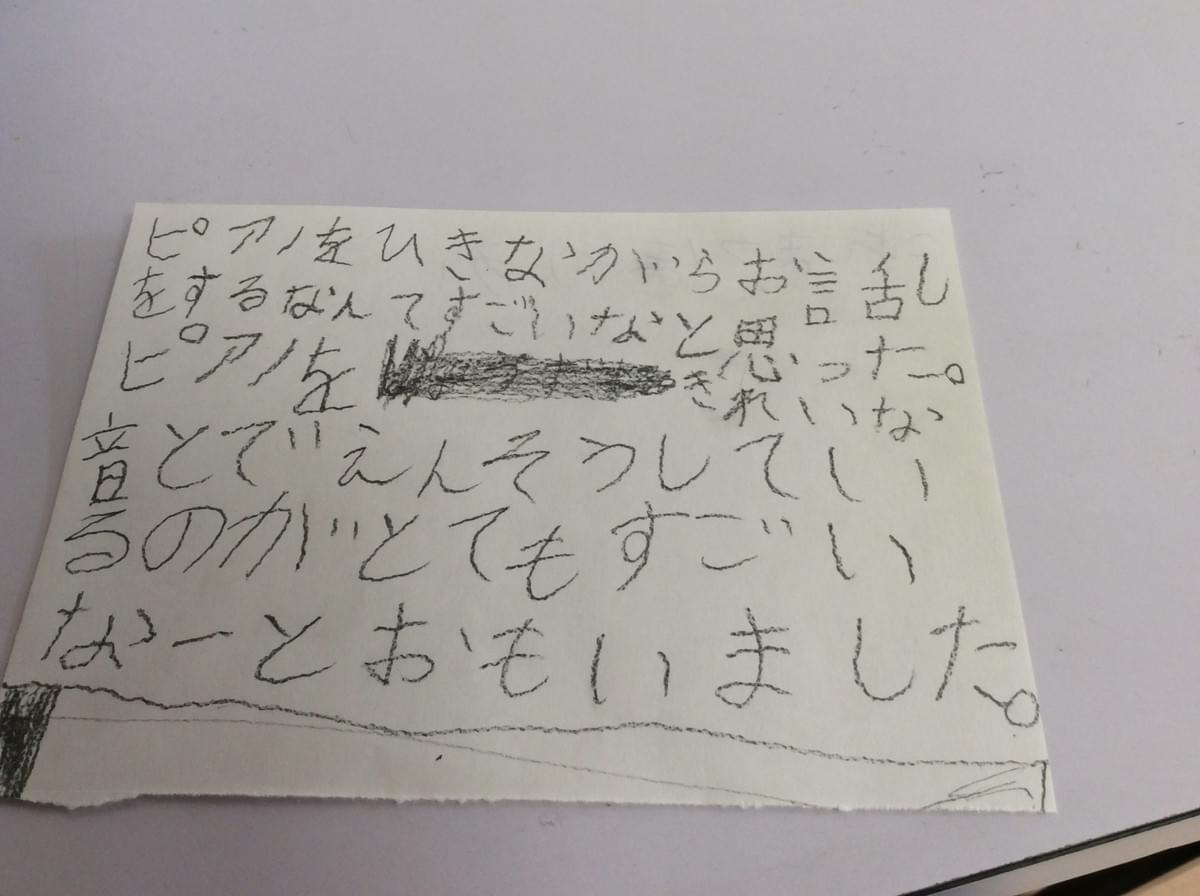 ピアノをひきながらお話し
をするなんてすごいなと思った。
ピアノをきれいな
音とでえんそうしてい
るのがとてもすごい
なーとおもいました。